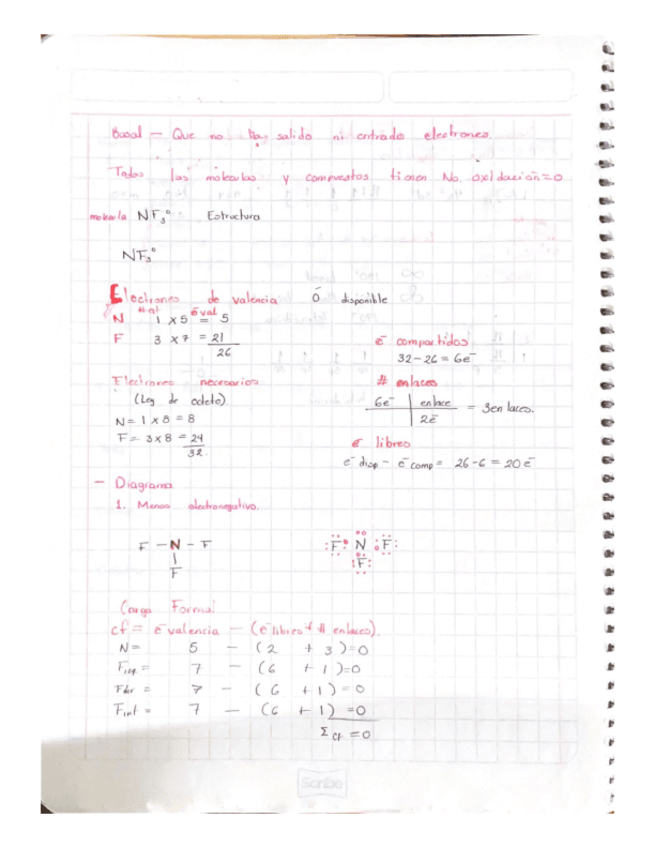 Basal — Que no ha salido ni entrado electrones.
Todas las moleculas y compuestos tienen No. oxidación=0
molecula NF₃° Estructura
NF₃°
Electrones de valencia ō disponible
#at ē val
N 1 x 5 = 5
F 3 x 7 = 21
26
ē compartidos
32-26 = 6e⁻
Electrones necesarios
(Ley de octeto)
N= 1 x 8 = 8
F= 3 x 8 = 24
32.
# enlaces
6e⁻ | enlace = 3enlaces.
2ē
e⁻ libres
e⁻ disp - e⁻ comp = 26-6 = 20 e⁻
- Diagrama
1. Menos electronegativo.
F - N - F
F
:F: N :F:
:F:
Carga Formal
cf = e⁻valencia - (e⁻libres + # enlaces).
N= 5 - (2 + 3)=0
Fizq = 7 - (6 + 1)=0
Fder = 7 - (6 + 1)=0
Finf = 7 - (6 + 1)=0
Σ CF = 0
Scribe